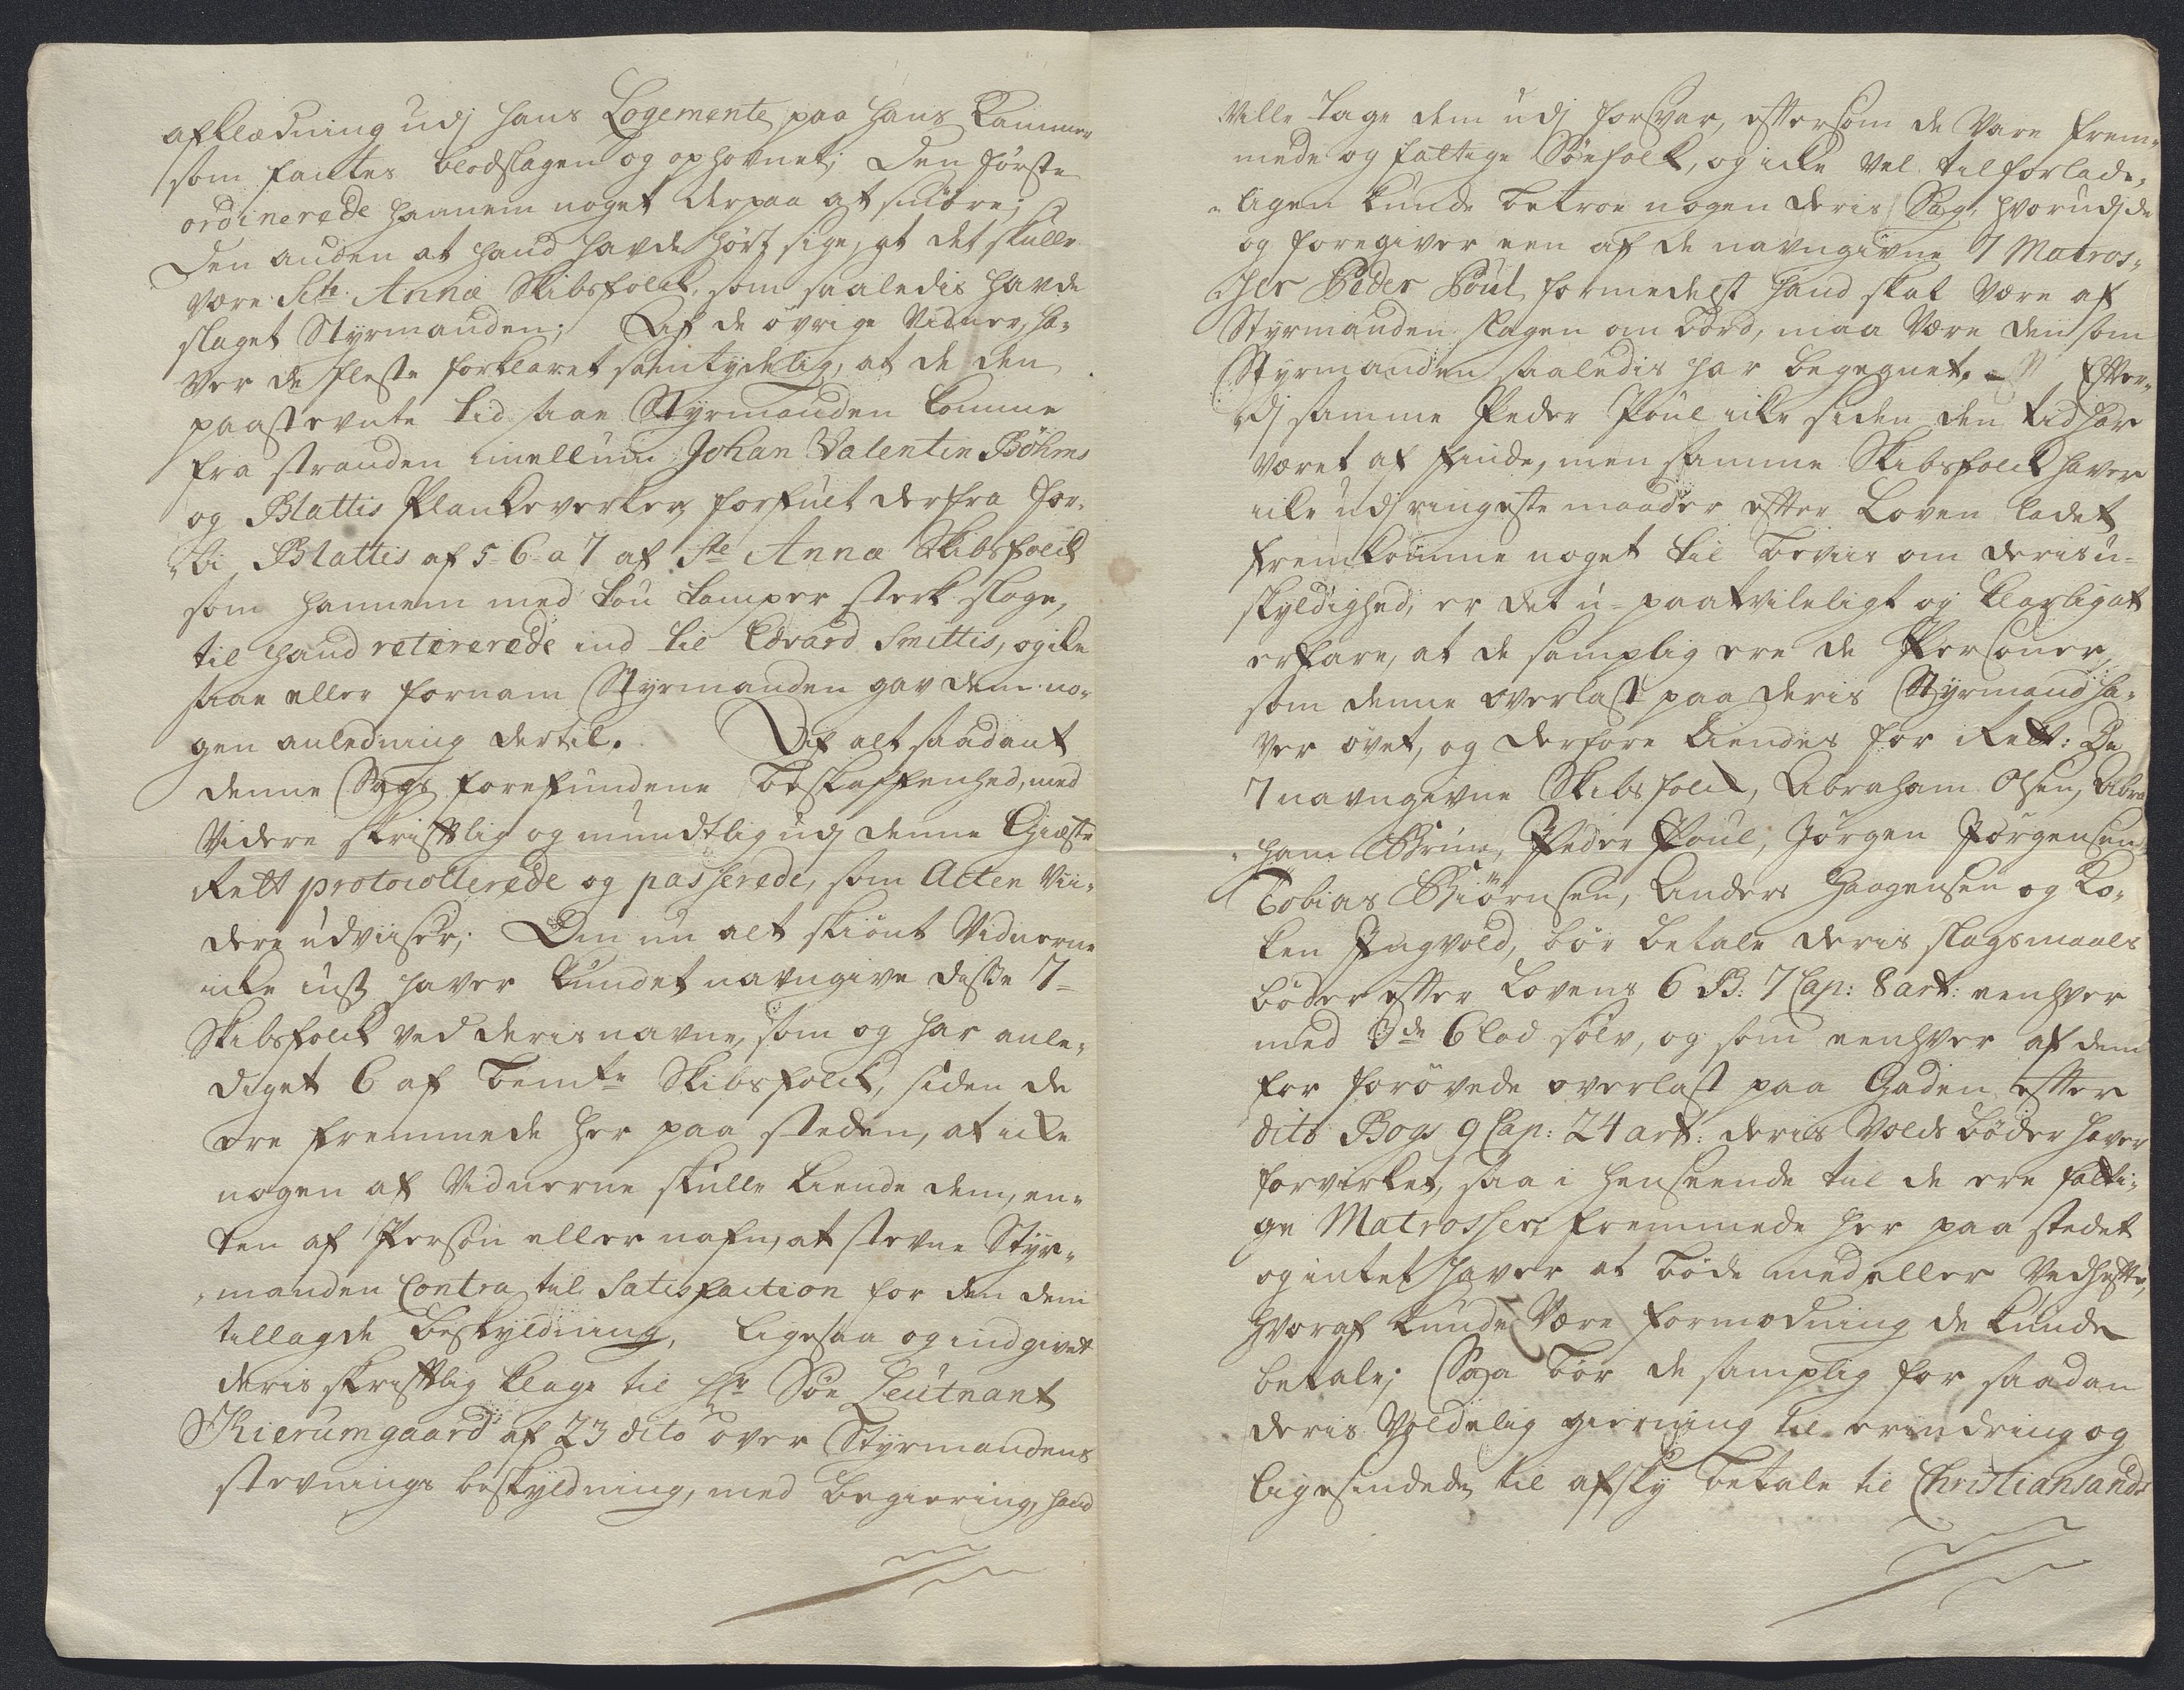 afklædning udj hans Logemente paa hans Kammer
som fantes blodslagen og ophovnet; Den første
ordinerede hannem noget derpaa at smöre;
Den anden at hand havde hört sige, at det skulle
være Sch: Annæ Skibsfolck, som saaledis havde
slaget Styrmanden; Af de övrige Vidner, ha-
ver de fleste forklaret samtydelig, at de den
paastevnte tid saae Styrmanden komme
fra stranden imellum Johan Valentin Böhms
og Blattis Plankeverker, forfult derfra for-
bi Blattis af 5-6 a 7 af Ste Annæ Skibsfolck
som hannem med tou tamper sterk sloge,
til hand reterede ind til Edvard Smittis, og ike
saae eller fornam Styrmanden gav dem no-
gen anledning dertil. Af alt saadant
denne Sags forefundene beskaffenhed, med
Videre skrifftlig og mundtlig udj denne Giæste
Rett protocollerede og passerede, som Acten Vii-
dere udviiser; Om nu alt skiönt Vidnerne
icke just haver kundet navngive disse 7
Skibsfolck ved deris navne, som og har anle-
diget 6 af bemte Skibsfolck, siden de
ere fremmede her paa steden, at icke
nogen af Vidnerne skulle kiende dem, en-
ten af Person eller nafn, at stevne Styr-
manden Contra til Satisfaction for den dem
tillagde beskyldning, ligesaa og indgivet
deris skrifftlig klage til Hr Söe Leutnant
Kierumgaard af 23 dito over Styrmandens
stevnings beskyldning, med begiering, hand
Ville tage dem udj forsvar, efftersom de Vare frem-
mede og fattige Söefolck, og icke vel tilforlade-
ligen kunde betroe nogen deris Sag, hvorudj de
og foregiver een af de navngivne 7 Matros-
ser Peder Poul, formedelst hand skal være af
Styrmanden slagen om bord, maa være den som
Styrmanden saaledis har begegnet. Effter-
dj samme Peder Poul icke siden den tid har
været at finde, men samme Skibsfolck haver
icke udj ringeste maader effter Loven ladet
fremkomme noget til beviis om deris u-
skyldighed, er det u-paatvileligt og klarligat
erfare, at de samptlig ere de Personer,
som denne overlast paa deris Styrmand ha-
ver övet, og derfore kiendes for Rett: De
7 navngivne Skibsfolck, Abraham Olsen, Abra-
ham Brun, Peder Poul, Jörgen Jörgensen
Tobias Biörnsen, Anders Haagensen og Ko-
ken Ingvold, bör betale deris slagsmaals
böder effter Lovens 6 B: 7 Cap: 8 art: eenhver
med 3de 6 lod sölv, og som eenhver af dem
for forövede overlast paa Gaden effter
dito Bogs 9 Cap: 24 art: deris Volds böder haver
forvirket, saa i henseende til de ere fatti-
ge Matrosser, fremmede her paa stedet
og intet haver at böde med eller Vedhefte,
hvoraf kunde Være formodning de kunde
betale; Saa bör de samptlig for saadan
deris Voldelig gierning til erindring og
ligesindede til afsky betale til Christiansands